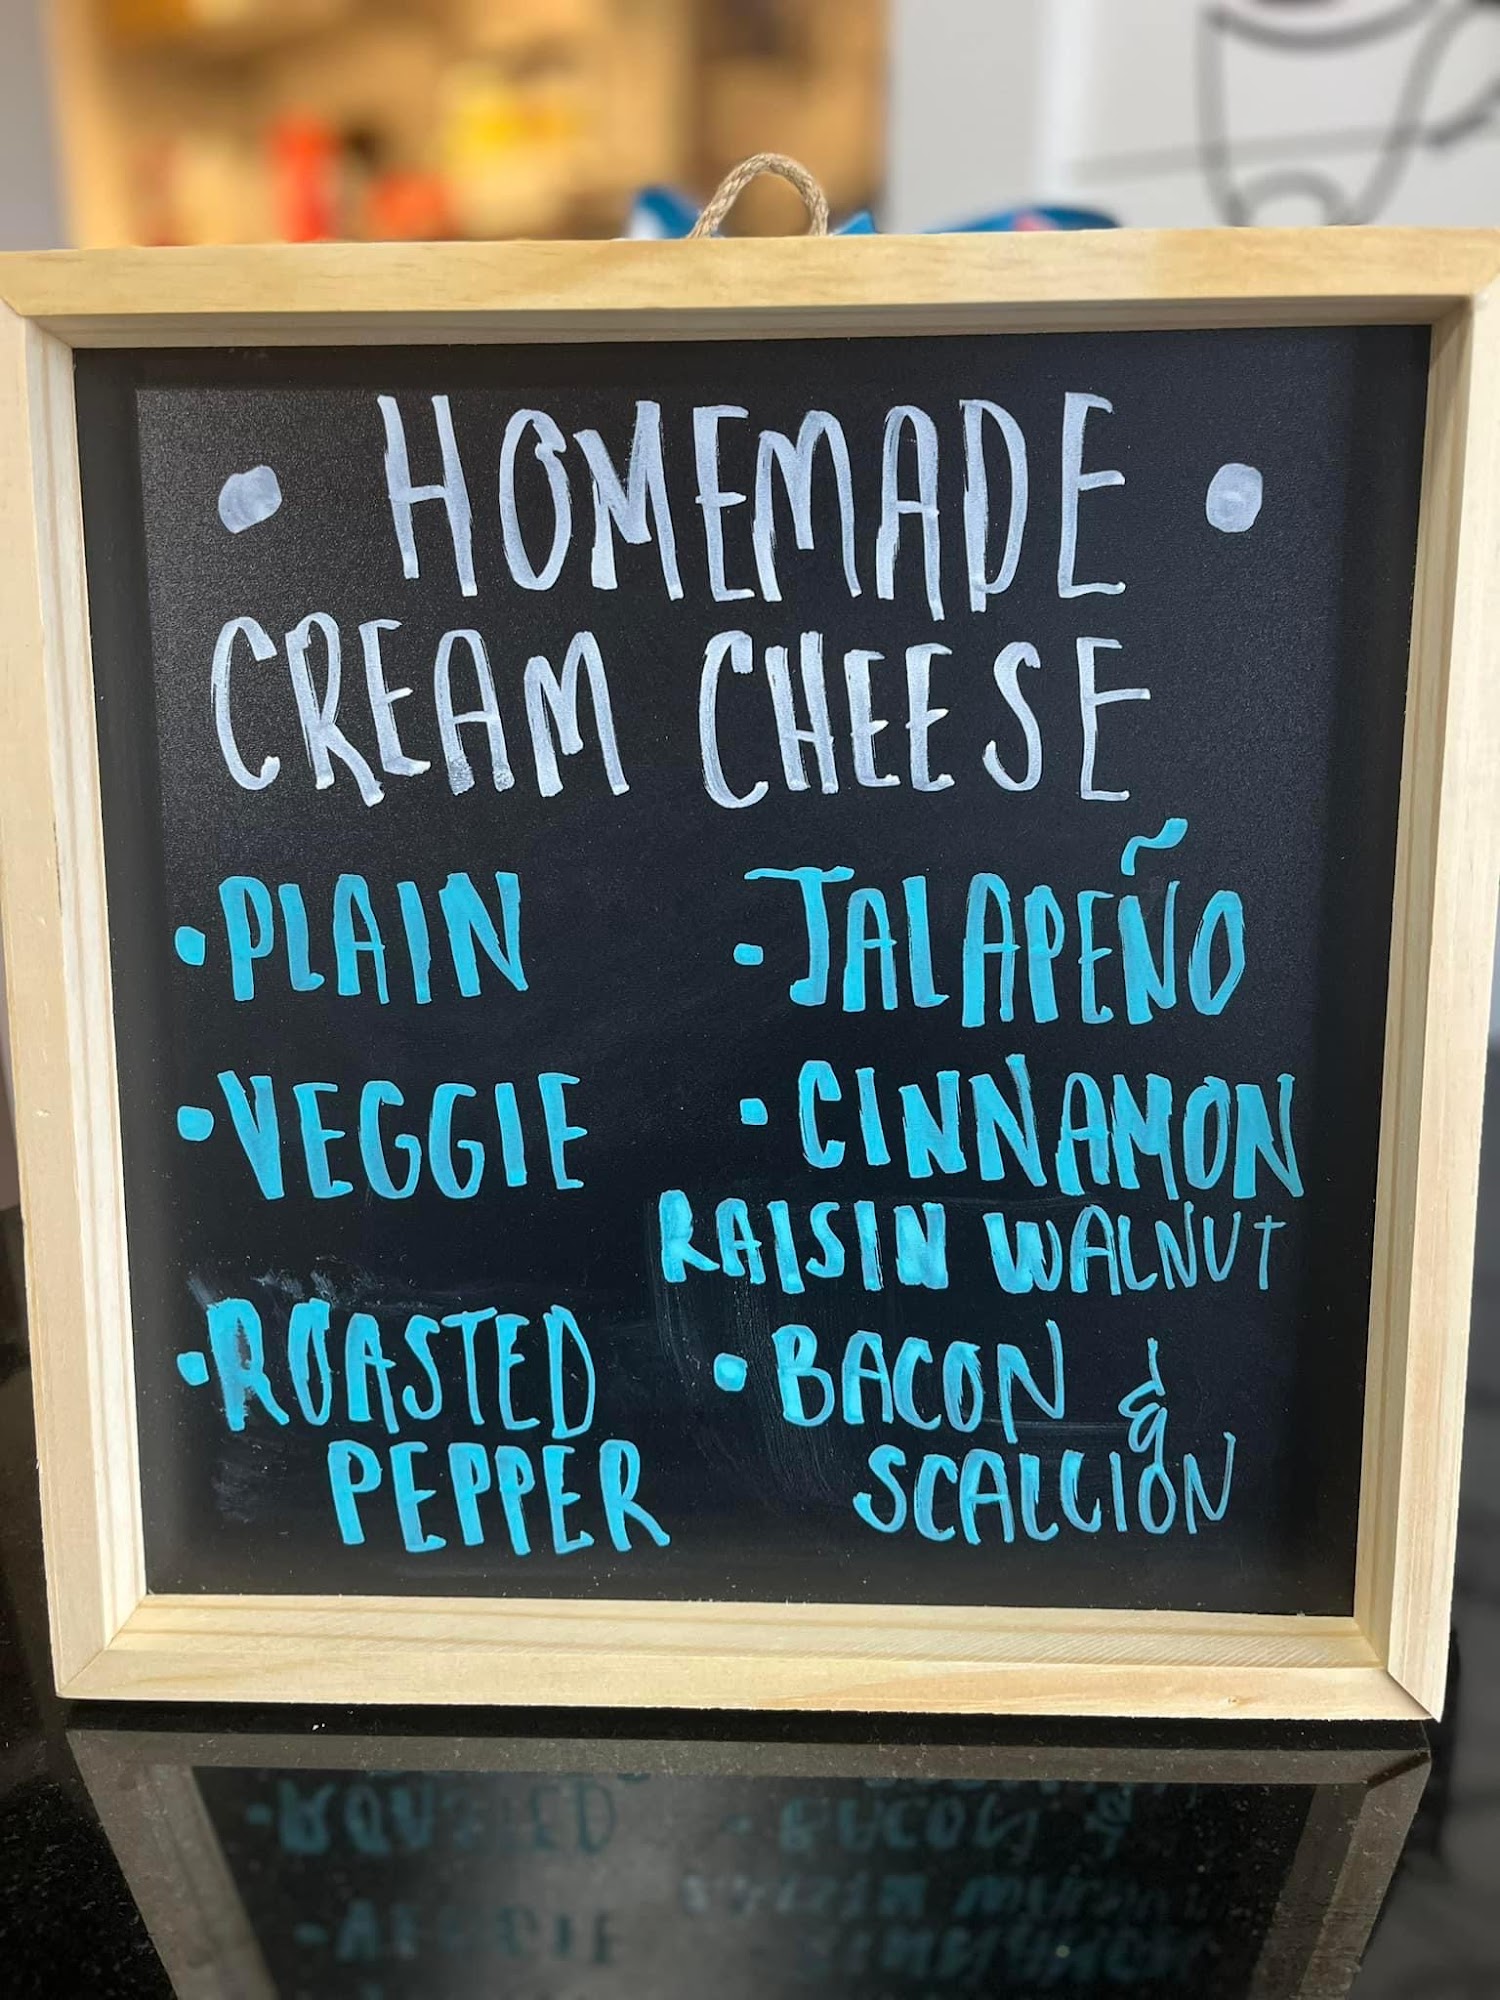 • HOMEMADE •
CREAM CHEESE
• PLAIN
• VEGGIE
• ROASTED
PEPPER
• JALAPEÑO
• CINNAMON
RAISIN WALNUT
• BACON &
SCALLION